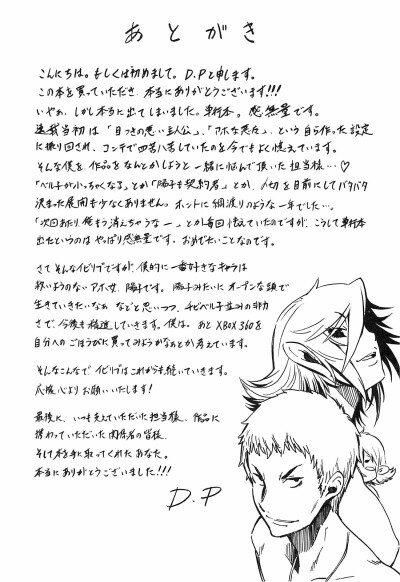 あとがき
こんにちは。もしくは初めまして。D.Pと申します。
この本を買っていただき、本当にありがとうございます!!!
いやぁ、しかし本当に出てしまいました。単行本。感無量です。
連載当初は「目つきの悪い主人公」、「アホな悪魔」、という自ら作った設定
に振り回され、コンテで四苦八苦していたのを今でもよく憶えています。
そんな僕を、作品をなんとかしようと一緒に悩んで頂いた担当様…♡
「ベル子が小っちゃくなる」とか「陽子も契約者」とか、〆切を目前にしてバタバタ
決まった展開も少なくありません。ホントに綱渡りのような一年でした…。
「次回あたり、俺もう消えちゃうなー」とか毎回怯えていたのですが、こうして単行本
出たというのはやっぱり感無量です。おめでたいことなのです。
さてそんなイビリブですが、僕的に一番好きなキャラは
救いようのないアホの女、陽子です。陽子みたいにオープンな頭で
生きていきたいなぁなどと思いつつ、チビベル子並みの非力
さで、今後も精進していきます。僕は、あとXBOX360を
自分へのごほうびに買ってみようかなぁとか考えています。
そんなこんなでイビリブはこれからも続いていきます。
応援心よりお願いいたします!
最後に、いつも支えていただいた担当様、作品に
携わっていただいた関係者の皆様、
そして本を手に取ってくれたあなた。
本当にありがとうございました!!!
D.P